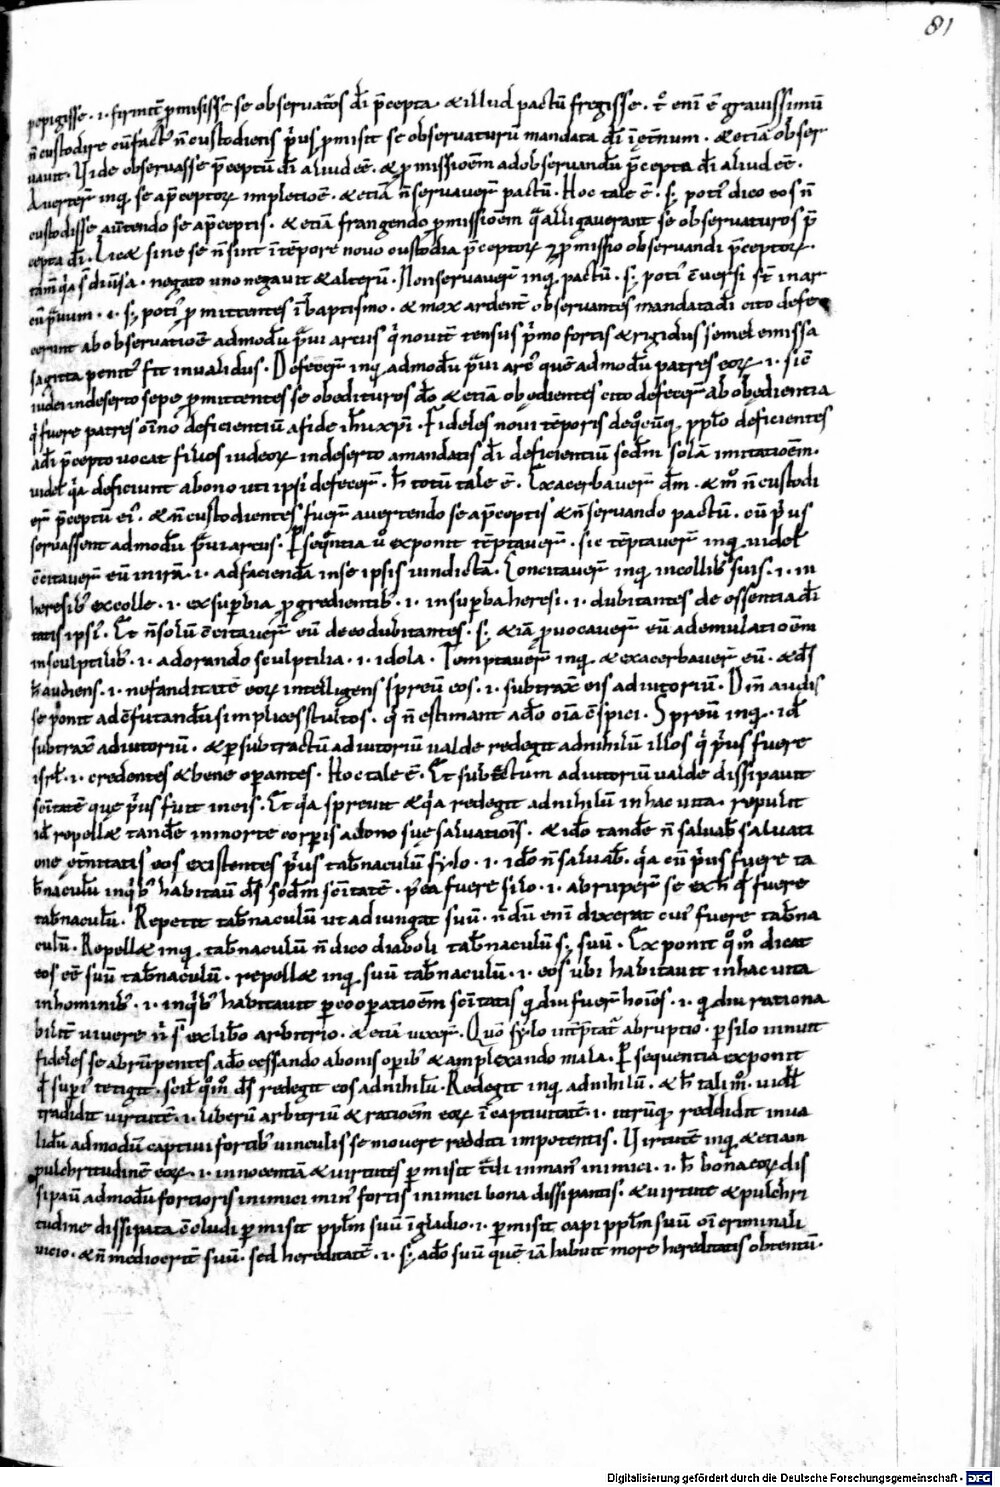 81
pepigisse · i · firmit̄ p̱misisse se observatu᷑os dī p̄cepta · & illud pactū fregisse · t᷑ enī ē gravissimū
n̄ custodire · n̄ custodiens p᷑us p̱misit se observaturū mandata dī · & etiā obser
vavit · Vide observasse p̄ceptū dī aliud eē · & p̱missioēm ad observandū p̄cepta dī aliud eē ·
Averter᷑ inq̇ · se a p̄ceptoꝝ impletioē · & etiā n̄ servaver᷑ pactū · Hoc tale ē · s; poti᷑ dico eos n̄
custodisse avertendo se a p̄ceptis · & etiā frangendo p̱missioēm qͣ alligaverant se observaturos p̄
cepta dī · Lic& sine se n̄ sint ī tēpore novo custodia p̄ceptoꝝ & p̱missio observandi p̄ceptoꝝ ·
negato uno negavit & alterū · Non servaver᷑ inq̇ · pactū · s; poti᷑ cv̄ersi s̄t in ar
cū pͣvum · i · s; poti᷑ p̱mittentes ī baptismo · & mox ardent̄ observantes mandata dī cito defe
cerunt ab observatioē admodū pͣvi arcus q̇ novit̄ tensus p᷑mo fortis & rigidus semel emissa
sagitta penit᷑ fit invalidus · Defecer᷑ inq̇ admodū pͣvi arc᷑ quēadmodū patres eoꝝ · i · sic̄
iudei in deserto sepe p̱mittentes se obedituros dō & etiā obedientes cito defecer᷑ ab obedientia
q̇ fuere patres oīno deficientiū a fide ih̄u xp̄i · Fideles novi tēporis deficientes
a dī p̄cepto vocat filios iudeoꝝ in deserto a mandatis dī deficientiū sed̄m solā imitatioēm ·
videl̄ q᷑a deficiunt a bono uti ipsi defecer᷑ · h̄ totū tale ē · Exacerbaver᷑ dm̄ · & mͦ n̄ custodi
er᷑ p̄ceptū ei᷑ · & n̄ custodientes fuer᷑ avertendo se a p̄ceptis & n̄ servando pactū · cū p᷑us
servassent admodū pͣvi arcus · P̱ seq̄ntia v̊ exponit tēptaver᷑ · sic tēptaver᷑ inq̇ videl̄
c̄citaver᷑ eū in irā · i · ad faciendā in se ipsis vindictā · Concitaver᷑ inq̇ in collib᷑ suis · i · in
heresib᷑ ex colle · i · ex sup̱bia p̱gredientib᷑ · i · in sup̱ba heresi · i · dubitantes de essentia dī
tatis ipsi᷑ · Et n̄ solū c̄citaver᷑ eū de eo dubitantes · s; & iā p̱vocaver᷑ eū ad emulatioēm
in sculptilib᷑ · i · adorando sculptilia · i · idola · Temptaver᷑ inq̇ · & exacerbaver᷑ eū · & ds̄
h̄ audiens · i · nefanditatē eoꝝ intelligens sprev̄ eos · i · subtrax̄ eis adiutoriū ·
se ponit ad c̄futandū simplices stultos · q̇ n̄ estimant a dō oīa c̄spici · Sprev̄ inq̇ · id̄
subtrax̄ adiutoriū · & p̱ subtractū adiutoriū valde redegit ad nihilū illos q̇ p᷑us fuere
isrl̄ · i · credentes & bene op̱antes · Hoc tale ē · Et adiutoriū valde dissipavit
sc̄itatē que p᷑us fuit in eis · Et q᷑a sprevit & q᷑a redegit ad nihilū in hac vita · repulit
id̄ repell& tandē in morte corp̱is a dono sue salvatiōis · & idō tandē n̄ salvab̄ salvati
one et̄nitatis eos existentes p᷑us tab̄naculū sylo · i · idō n̄ salvab̄ · q᷑a cū p᷑us fuere ta
b̄naculū in q̇b᷑ habitav̄ ds̄ sed̄m sc̄itatē · p᷑ea fuere silo · i · abruper᷑ se ex h̄ qd̄ fuere
tab̄naculū · Repetit tab̄naculū ut adiungat suū · n̄dū enī dixerat cui᷑ fuere tab̄na
culū · Repell& inq̇ · tab̄naculū n̄ dico diaboli tab̄naculū s; suū · Exponit qͦmͦ dicat
eos eē suū tab̄naculū · repell& inq̇ · suū tab̄naculū · i · eos ubi habitavit in hac vita
in hominib᷑ · i · in q̇b᷑ habitavit p̱ coop̱atioēm sc̄itatis q̇ diu fuer᷑ hoīes · i · q̇ diu rationa
bilit̄ vivere n̄ s̄ ex lib̄o arbitrio · & etiā vixer᷑ · Quō sylo int̄p̄tat᷑ abruptio · p̱ silo innuit
fideles se abrūpentes a dō cessando a bonis op̱ib᷑ & amplexando mala · P̱ sequentia exponit
qd̄ sup̱i᷑ tetigit · scil̄ qͦmͦ ds̄ redegit eos ad nihilū · Redegit inq̇ ad nihilū · & h̄ tali mͦ · videl̄
tradidit virtutē · i · liberū arbitriū & ratioēm eoꝝ ī captivitatē · i · utrūq̇ reddidit inva
lidū admodū captivi fortib᷑ vinculis se movere redditi impotentis · Virtutē inq̇ & etiam
pulchritudinē eoꝝ · i · innocentiā & virtutes p̱misit tͣdi in man᷑ inimici · i · h̄ bona eoꝝ dis
sipav̄ admodū fortioris inimici min᷑ fortis inimici bona dissipantis · & virtute & pulchri
tudine dissipata c̄cludi p̱misit ppl̄m suū ī gladio · i · p̱misit capi ppl̄m suū oī criminali
vicio · & n̄ mediocrit̄ suū · sed hereditatē · i · s; adō suū quē iā habuit more hereditatis obtentū ·
Digitalisierung gefördert durch die Deutsche Forschungsgemeinschaft - DFG